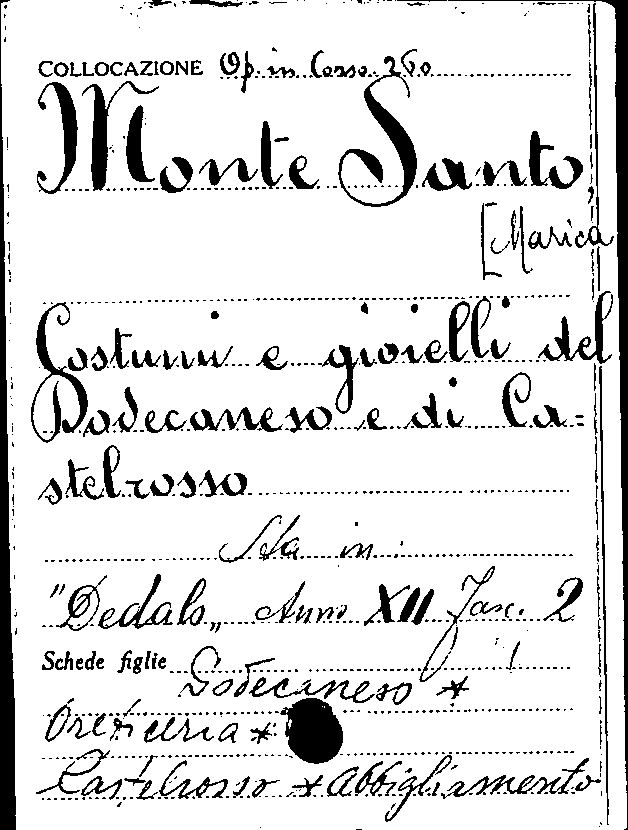 COLLOCAZIONE Op. in Corso 260
Monte Santo,
[Marica
Costumi e gioielli del
Dodecaneso e di Ca=
stelrosso
Sta in:
"Dedalo„ Anno XII Fasc. 2
Schede figlie
Dodecaneso *
Oreficeria *
Castelrosso * Abbigliamento